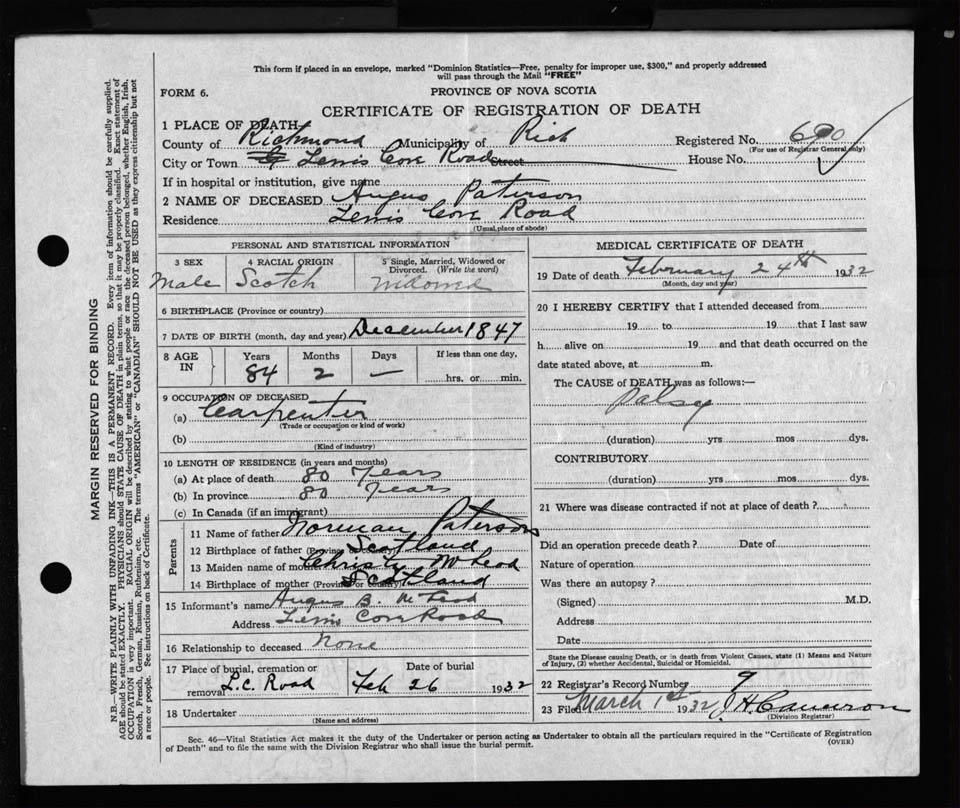 This form if placed in an envelope, marked "Dominion Statistics—Free, penalty for improper use, $300," and properly addressed
will pass through the Mail "FREE"
FORM 6.
PROVINCE OF NOVA SCOTIA
CERTIFICATE OF REGISTRATION OF DEATH
1 PLACE OF DEATH—
County of Richmond Municipality of Rich Registered No. 690
(For use of Registrar General only)
City or Town Lewis Cove Road Street House No.
If in hospital or institution, give name
2 NAME OF DECEASED Angus Paterson
Residence Lewis Cove Road
(Usual place of abode)
PERSONAL AND STATISTICAL INFORMATION
3 SEX 4 RACIAL ORIGIN 5 Single, Married, Widowed or
Divorced. (Write the word)
Male Scotch Widowed
6 BIRTHPLACE (Province or country)
7 DATE OF BIRTH (month, day and year) December 1847
8 AGE IN Years Months Days If less than one day,
84 2 — hrs. or min.
9 OCCUPATION OF DECEASED
(a) Carpenter
(Trade or occupation or kind of work)
(b)
(Kind of industry)
10 LENGTH OF RESIDENCE (in years and months)
(a) At place of death 80 years
(b) In province 80 years
(c) In Canada (if an immigrant)
Parents
11 Name of father Norman Paterson
12 Birthplace of father (Province or country) Scotland
13 Maiden name of mother Christy McLeod
14 Birthplace of mother (Province or country) Scotland
15 Informant's name Angus B. McLeod
Address Lewis Cove Road
16 Relationship to deceased None
17 Place of burial, cremation or Date of burial
removal L.C. Road Feb 26 1932
18 Undertaker
(Name and address)
MEDICAL CERTIFICATE OF DEATH
19 Date of death February 24th 1932
(Month, day and year)
20 I HEREBY CERTIFY that I attended deceased from
19 to 19 that I last saw
h alive on 19 and that death occurred on the
date stated above, at m.
The CAUSE of DEATH was as follows:—
Palsy
(duration) yrs mos dys.
CONTRIBUTORY
(duration) yrs mos dys.
21 Where was disease contracted if not at place of death?
Did an operation precede death? Date of
Nature of operation
Was there an autopsy?
(Signed) M.D.
Address
Date
State the Disease causing Death, or in death from Violent Causes, state (1) Means and Nature
of Injury, (2) whether Accidental, Suicidal or Homicidal.
22 Registrar's Record Number 9
23 Filed March 1st 1932 J. H. Cameron
(Division Registrar)
Sec. 46—Vital Statistics Act makes it the duty of the Undertaker or person acting as Undertaker to obtain all the particulars required in the "Certificate of Registration
of Death" and to file the same with the Division Registrar who shall issue the burial permit.
(OVER)
MARGIN RESERVED FOR BINDING
N.B.—WRITE PLAINLY WITH UNFADING INK—THIS IS A PERMANENT RECORD. Every item of information should be carefully supplied.
AGE should be stated EXACTLY. PHYSICIANS should STATE CAUSE OF DEATH in plain terms, so that it may be properly classified. Exact statement of
OCCUPATION is very important. RACIAL ORIGIN will be described by stating to what people or race the deceased person belonged, whether English, Irish,
Scotch, French, German, Russian, Ruthenian, etc. The terms "AMERICAN" or "CANADIAN" SHOULD NOT BE USED as they express citizenship but not
a race or people. See instructions on back of Certificate.